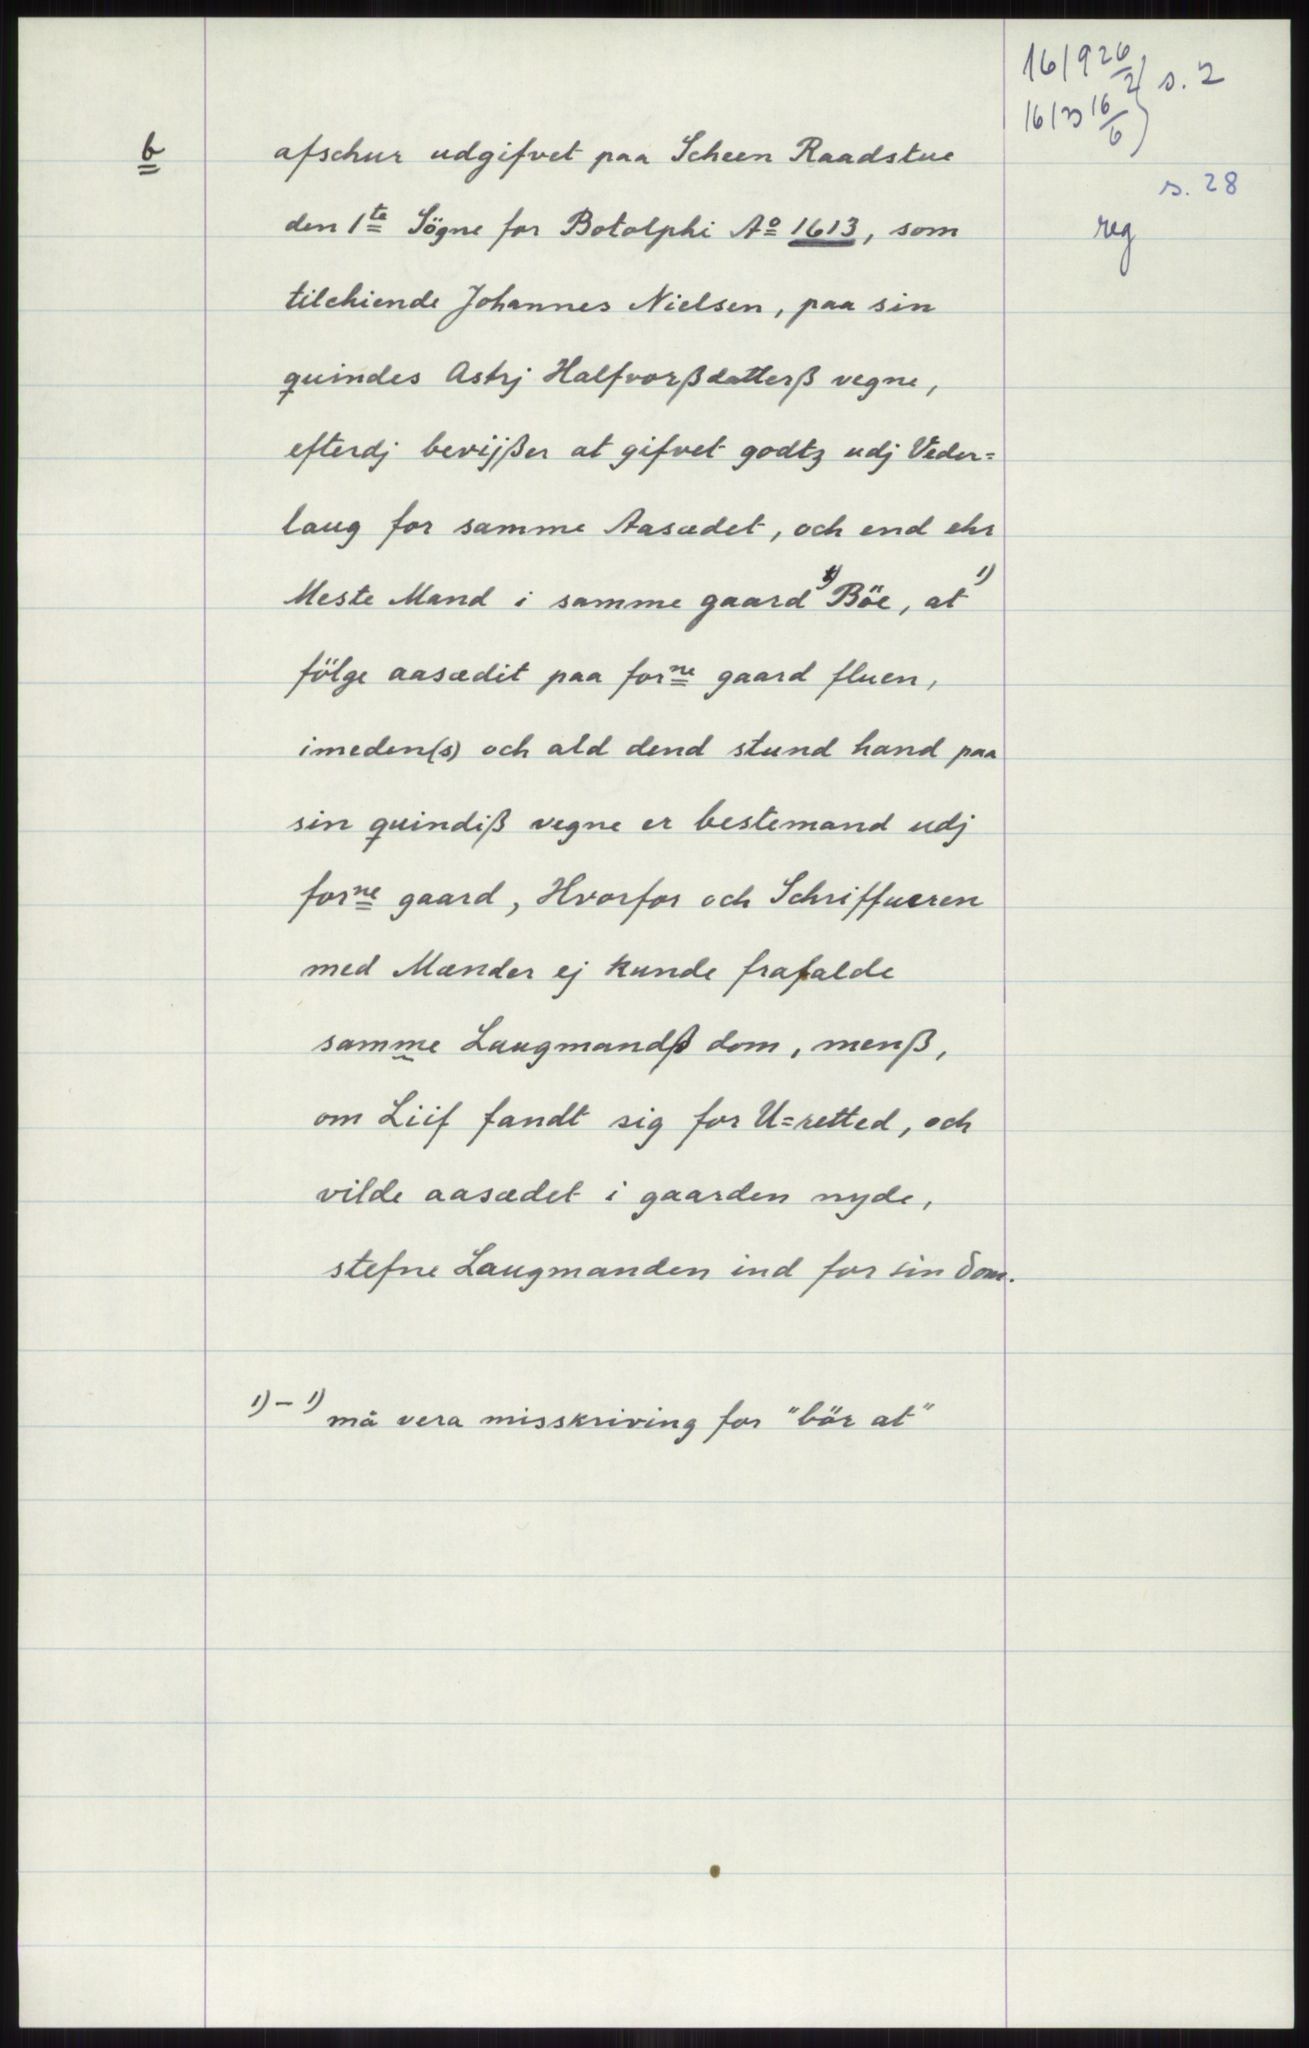 1619 26/2 } s. 2
1613 16/6
s. 28
reg
b
afschur udgifvet paa Scheen Raadstue
den 1te Sögne for Botolphi Ao 1613, som
tilchiende Johannes Nielsen, paa sin
quindes Astrj Halfvorßdatterß vegne,
efterdj bevijßer at gifvet godtz udj Veder=
laug for samme Aasædet, och end ehr
Meste Mand i samme gaard 1) Böe, at 1)
fölge aasædit paa forne gaard fluen,
imeden(s) och ald dend stund hand paa
sin quindiß vegne er bestemand udj
forne gaard, Hvorfor och Schriffueren
med Mænder ej kunde frafalde
samme Laugmandß dom, menß,
om Liif fandt sig for U=retted, och
vilde aasædet i gaarden nyde,
stefne Laugmanden ind for sin Dom.
1) - 1) må vera misskriving for "bör at"